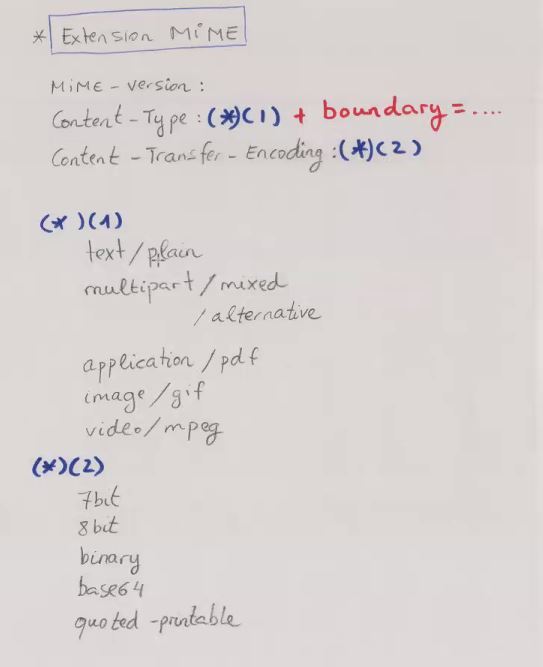 * Extension MiME
MiME - version :
Content - Type : (*)(1) + boundary = ....
Content - Transfer - Encoding : (*)(2)
(*)(1)
text / plain
multipart / mixed
/ alternative
application / pdf
image / gif
video / mpeg
(*)(2)
7bit
8bit
binary
base64
quoted - printable